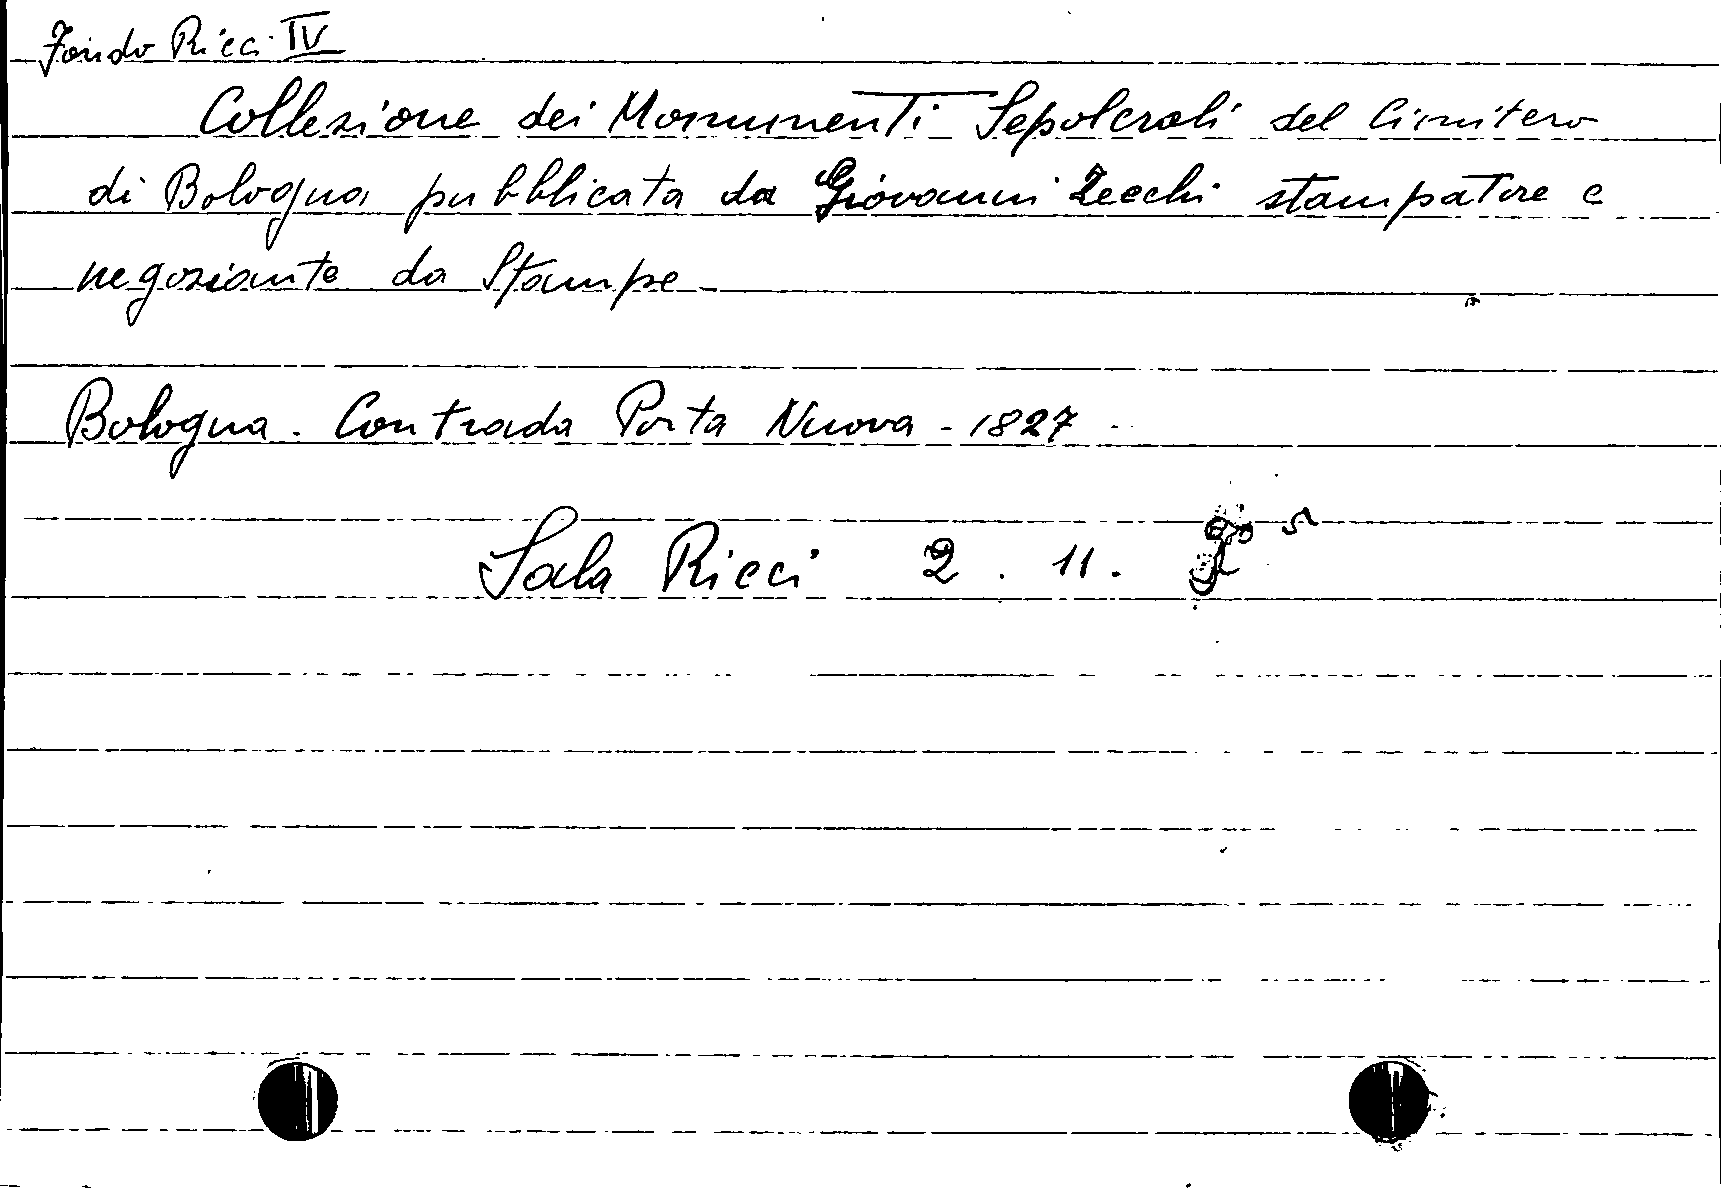 Fondo Ricci IV
Collezione dei Monumenti Sepolcrali del Cimitero
di Bologna pubblicata da Giovanni Zecchi stampatore e
negoziante da Stampe
Bologna. Contrada Porta Nuova - 1827
Sala Ricci 2. 11.